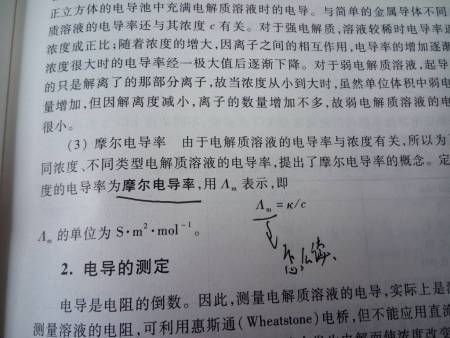 正立方体的电导池中充满电解质溶液时的电导。与简单的金属导体不同
质溶液的电导率还与其浓度 c 有关。对于强电解质,溶液较稀时电导率
浓度成正比;随着浓度的增大,因离子之间的相互作用,电导率的增加逐渐
浓度很大时的电导率经一极大值后逐渐下降。对于弱电解质溶液,起导
的只是解离了的那部分离子,故当浓度从小到大时,虽然单位体积中弱电
量增加,但因解离度减小,离子的数量增加不多,故弱电解质溶液的电
很小。
(3) 摩尔电导率 由于电解质溶液的电导率与浓度有关,所以为了
同浓度、不同类型电解质溶液的电导率,提出了摩尔电导率的概念。定
度的电导率为摩尔电导率,用 Λm 表示,即
Λm = κ/c
Λm 的单位为 S·m²·mol⁻¹。
怎么读、
2. 电导的测定
电导是电阻的倒数。因此,测量电解质溶液的电导,实际上是
测量溶液的电阻,可利用惠斯通(Wheatstone)电桥,但不能应用直流
电解而使浓度改变